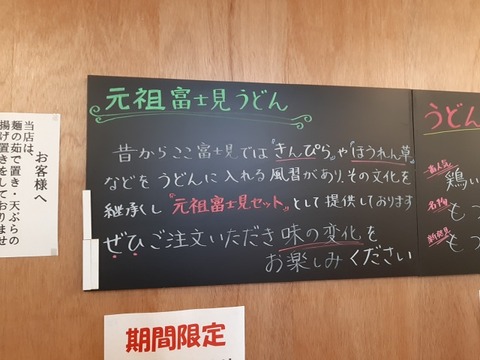 元祖富士見うどん
昔からここ富士見では『きんぴら』や『ほうれん草』
などをうどんに入れる風習があり、その文化を
継承し『元祖富士見セット』として提供しております
ぜひご注文いただき味の変化を
お楽しみください
お客様へ
当店は、
麺の茹で置き・天ぷらの
揚げ置きをしておりませ
期間限定
うどん
一番人気
鶏
名物
もつ
新発見
もつ